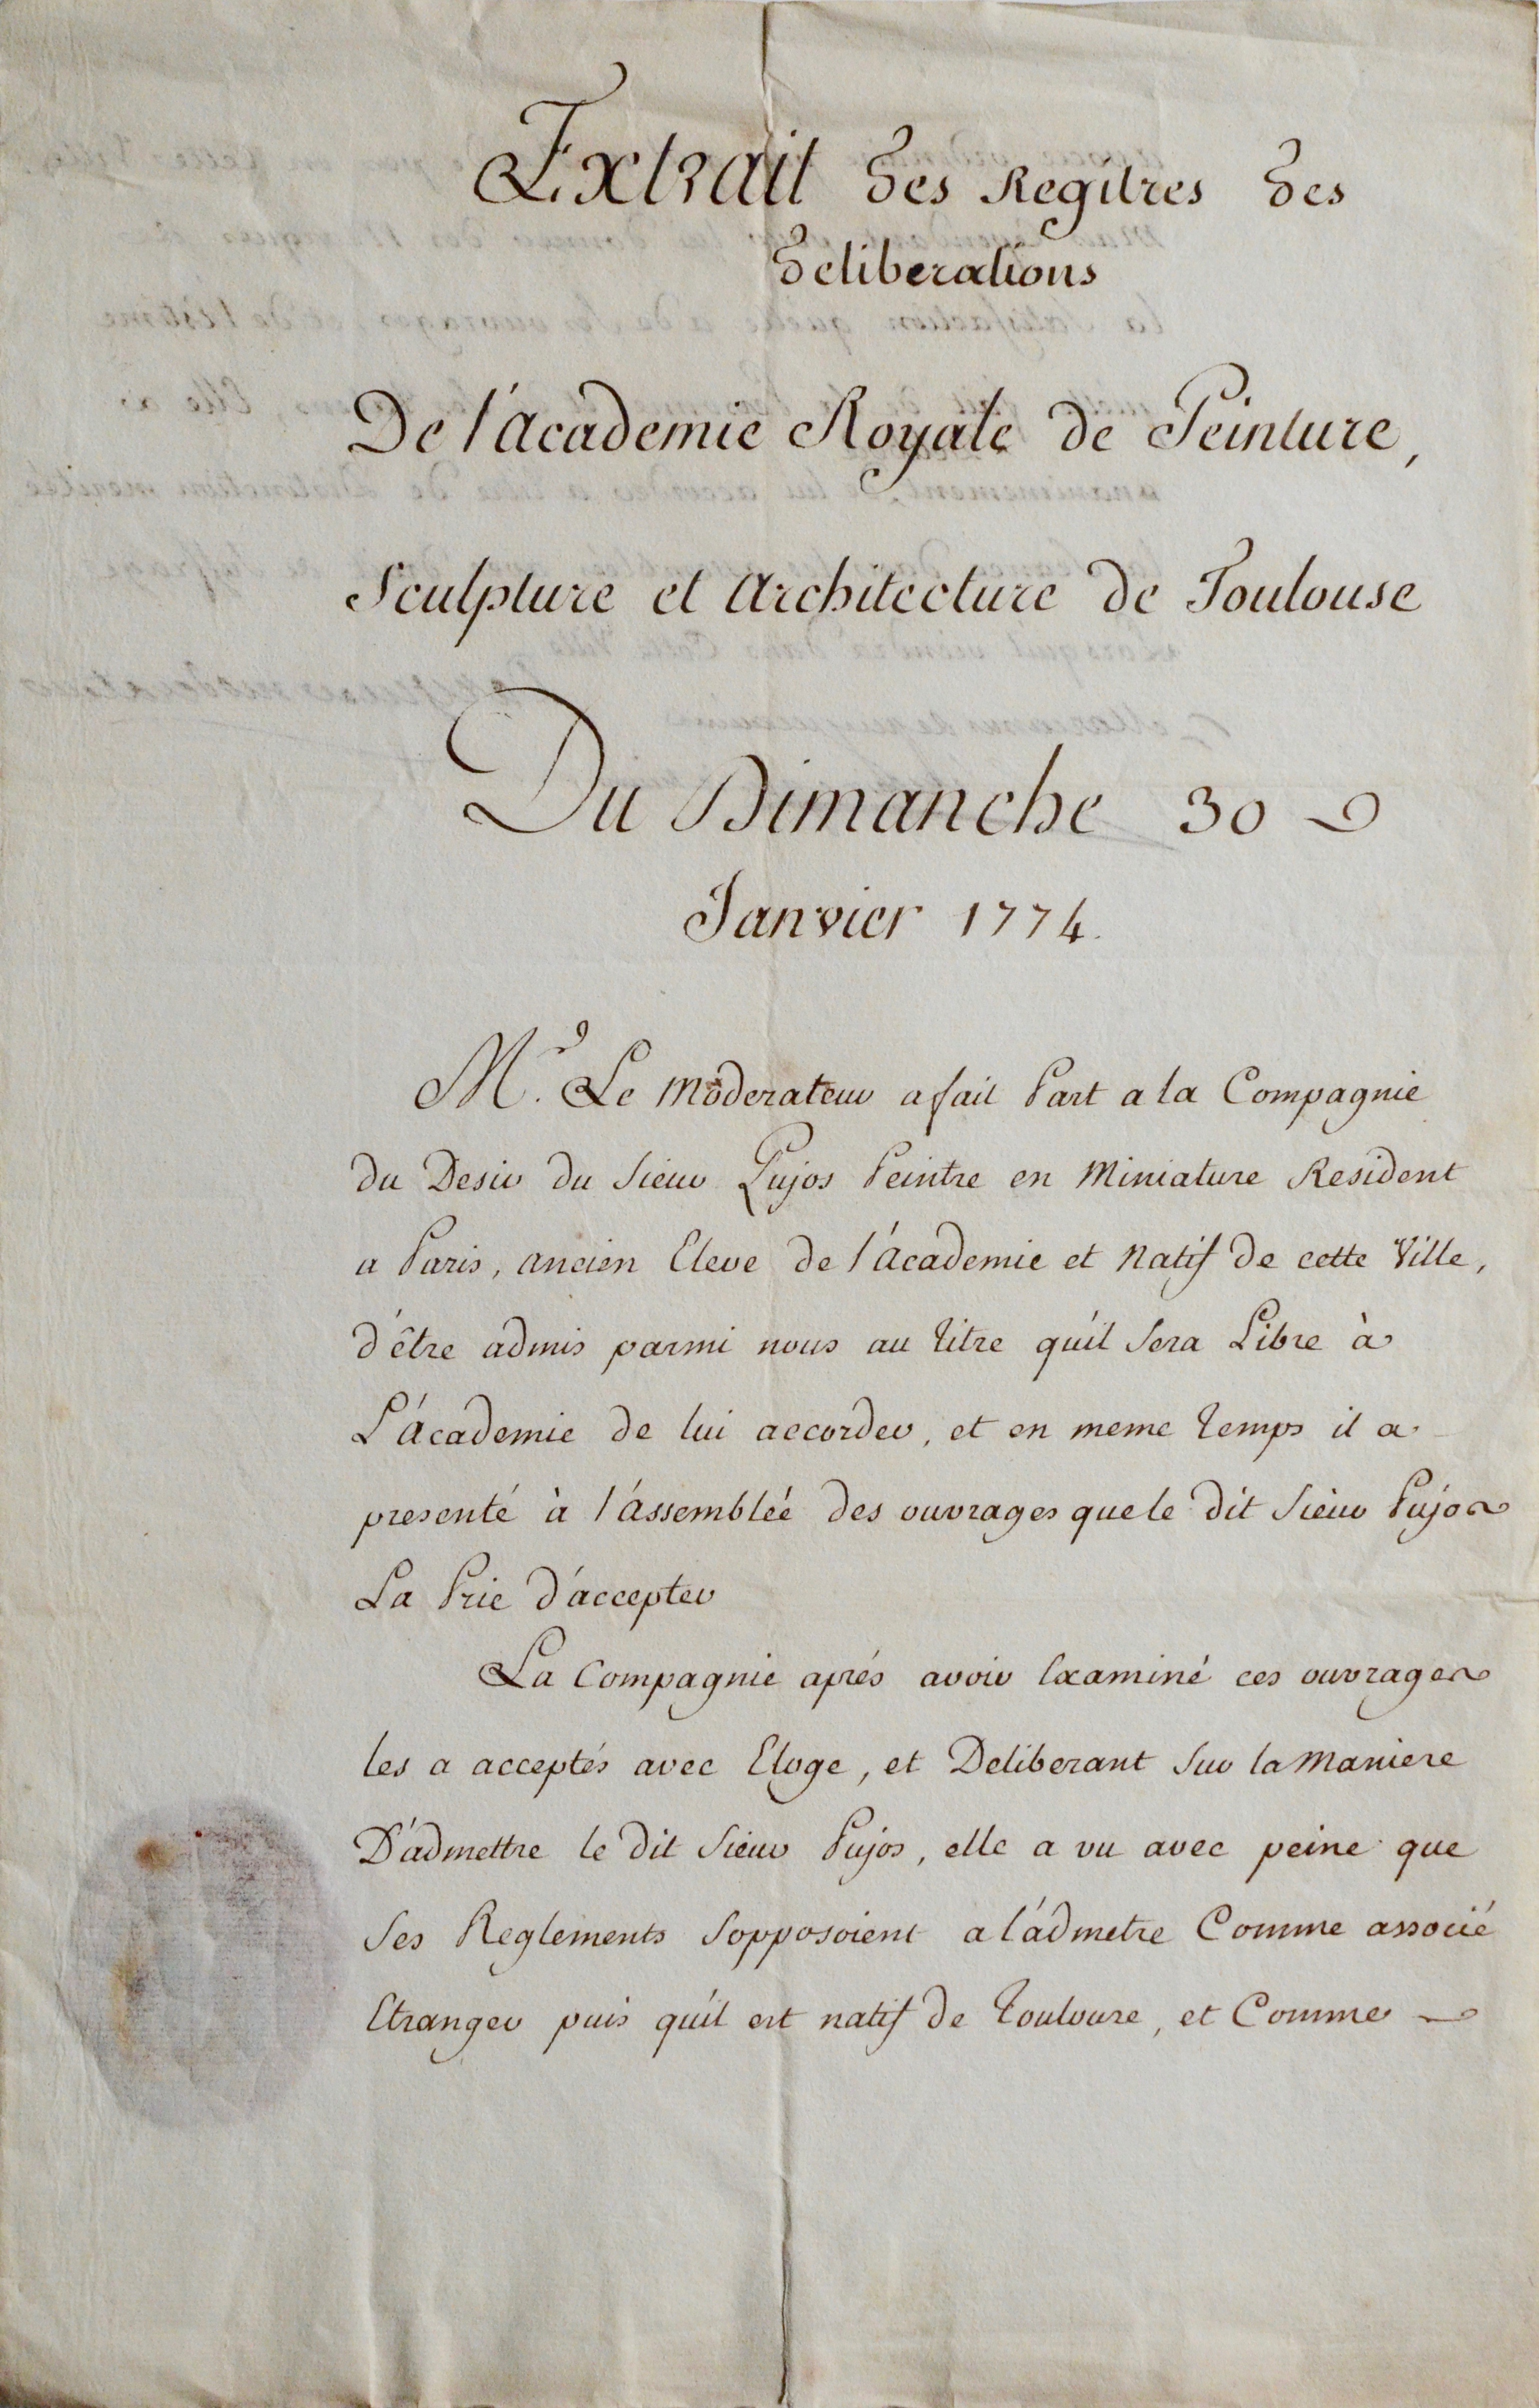 Extrait des Regitres des
deliberations
De l'academie Royale de Peinture,
Sculpture et Architecture de Toulouse
Du Dimanche 30
Janvier 1774.
Mr. Le Moderateur a fait Part a la Compagnie
du Desir du Sieur Pujos Peintre en Miniature Resident
a Paris, ancien Eleve de l'academie et Natif de cette Ville,
d'être admis parmi nous au titre qu'il Sera Libre à
L'academie de lui accorder, et en meme temps il a
presenté à l'assemblée des ouvrages que le dit Sieur Pujos
La Prie d'accepter
La Compagnie aprés avoir Examiné ces ouvrages
les a acceptés avec Eloge, et Deliberant Sur la Maniere
D'admettre le dit Sieur Pujos, elle a vu avec peine que
Ses Reglements Sopposoient a l'admetre Comme associé
Etranger puis qu'il est natif de Toulouse, et Comme